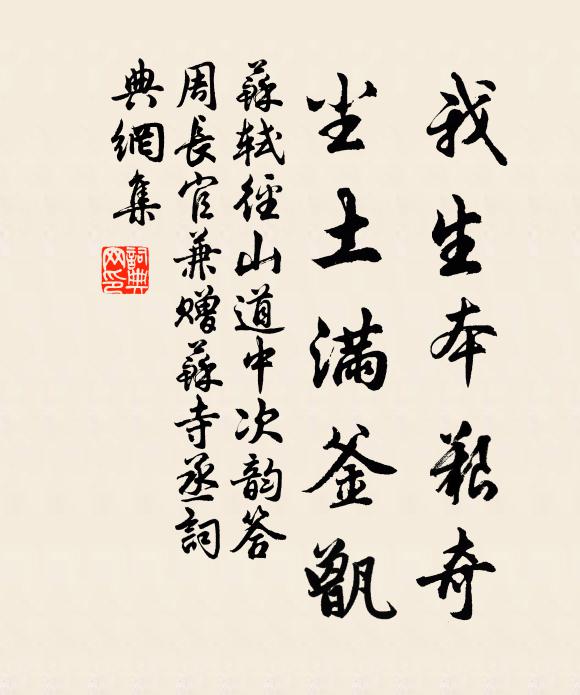 我生本艱奇
尘土滿釜甑
蘇軾徑山道中次韵答
周長官兼贈蘇寺丞詞
典網集
詞典网印